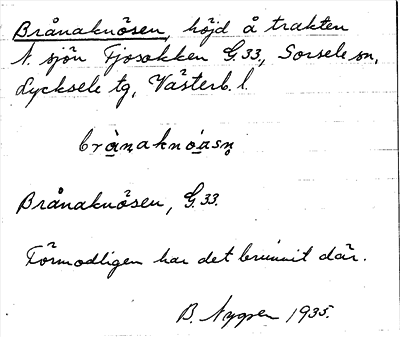 Brånaknösen, höjd å trakten
N. sjön Fjosokken G.33., Sorsele sn,
Lycksele tg, Västerb. l.
brånaknöasn
Brånaknösen, G.33.
Förmodligen har det brunnit där.
B. Nygren 1935.